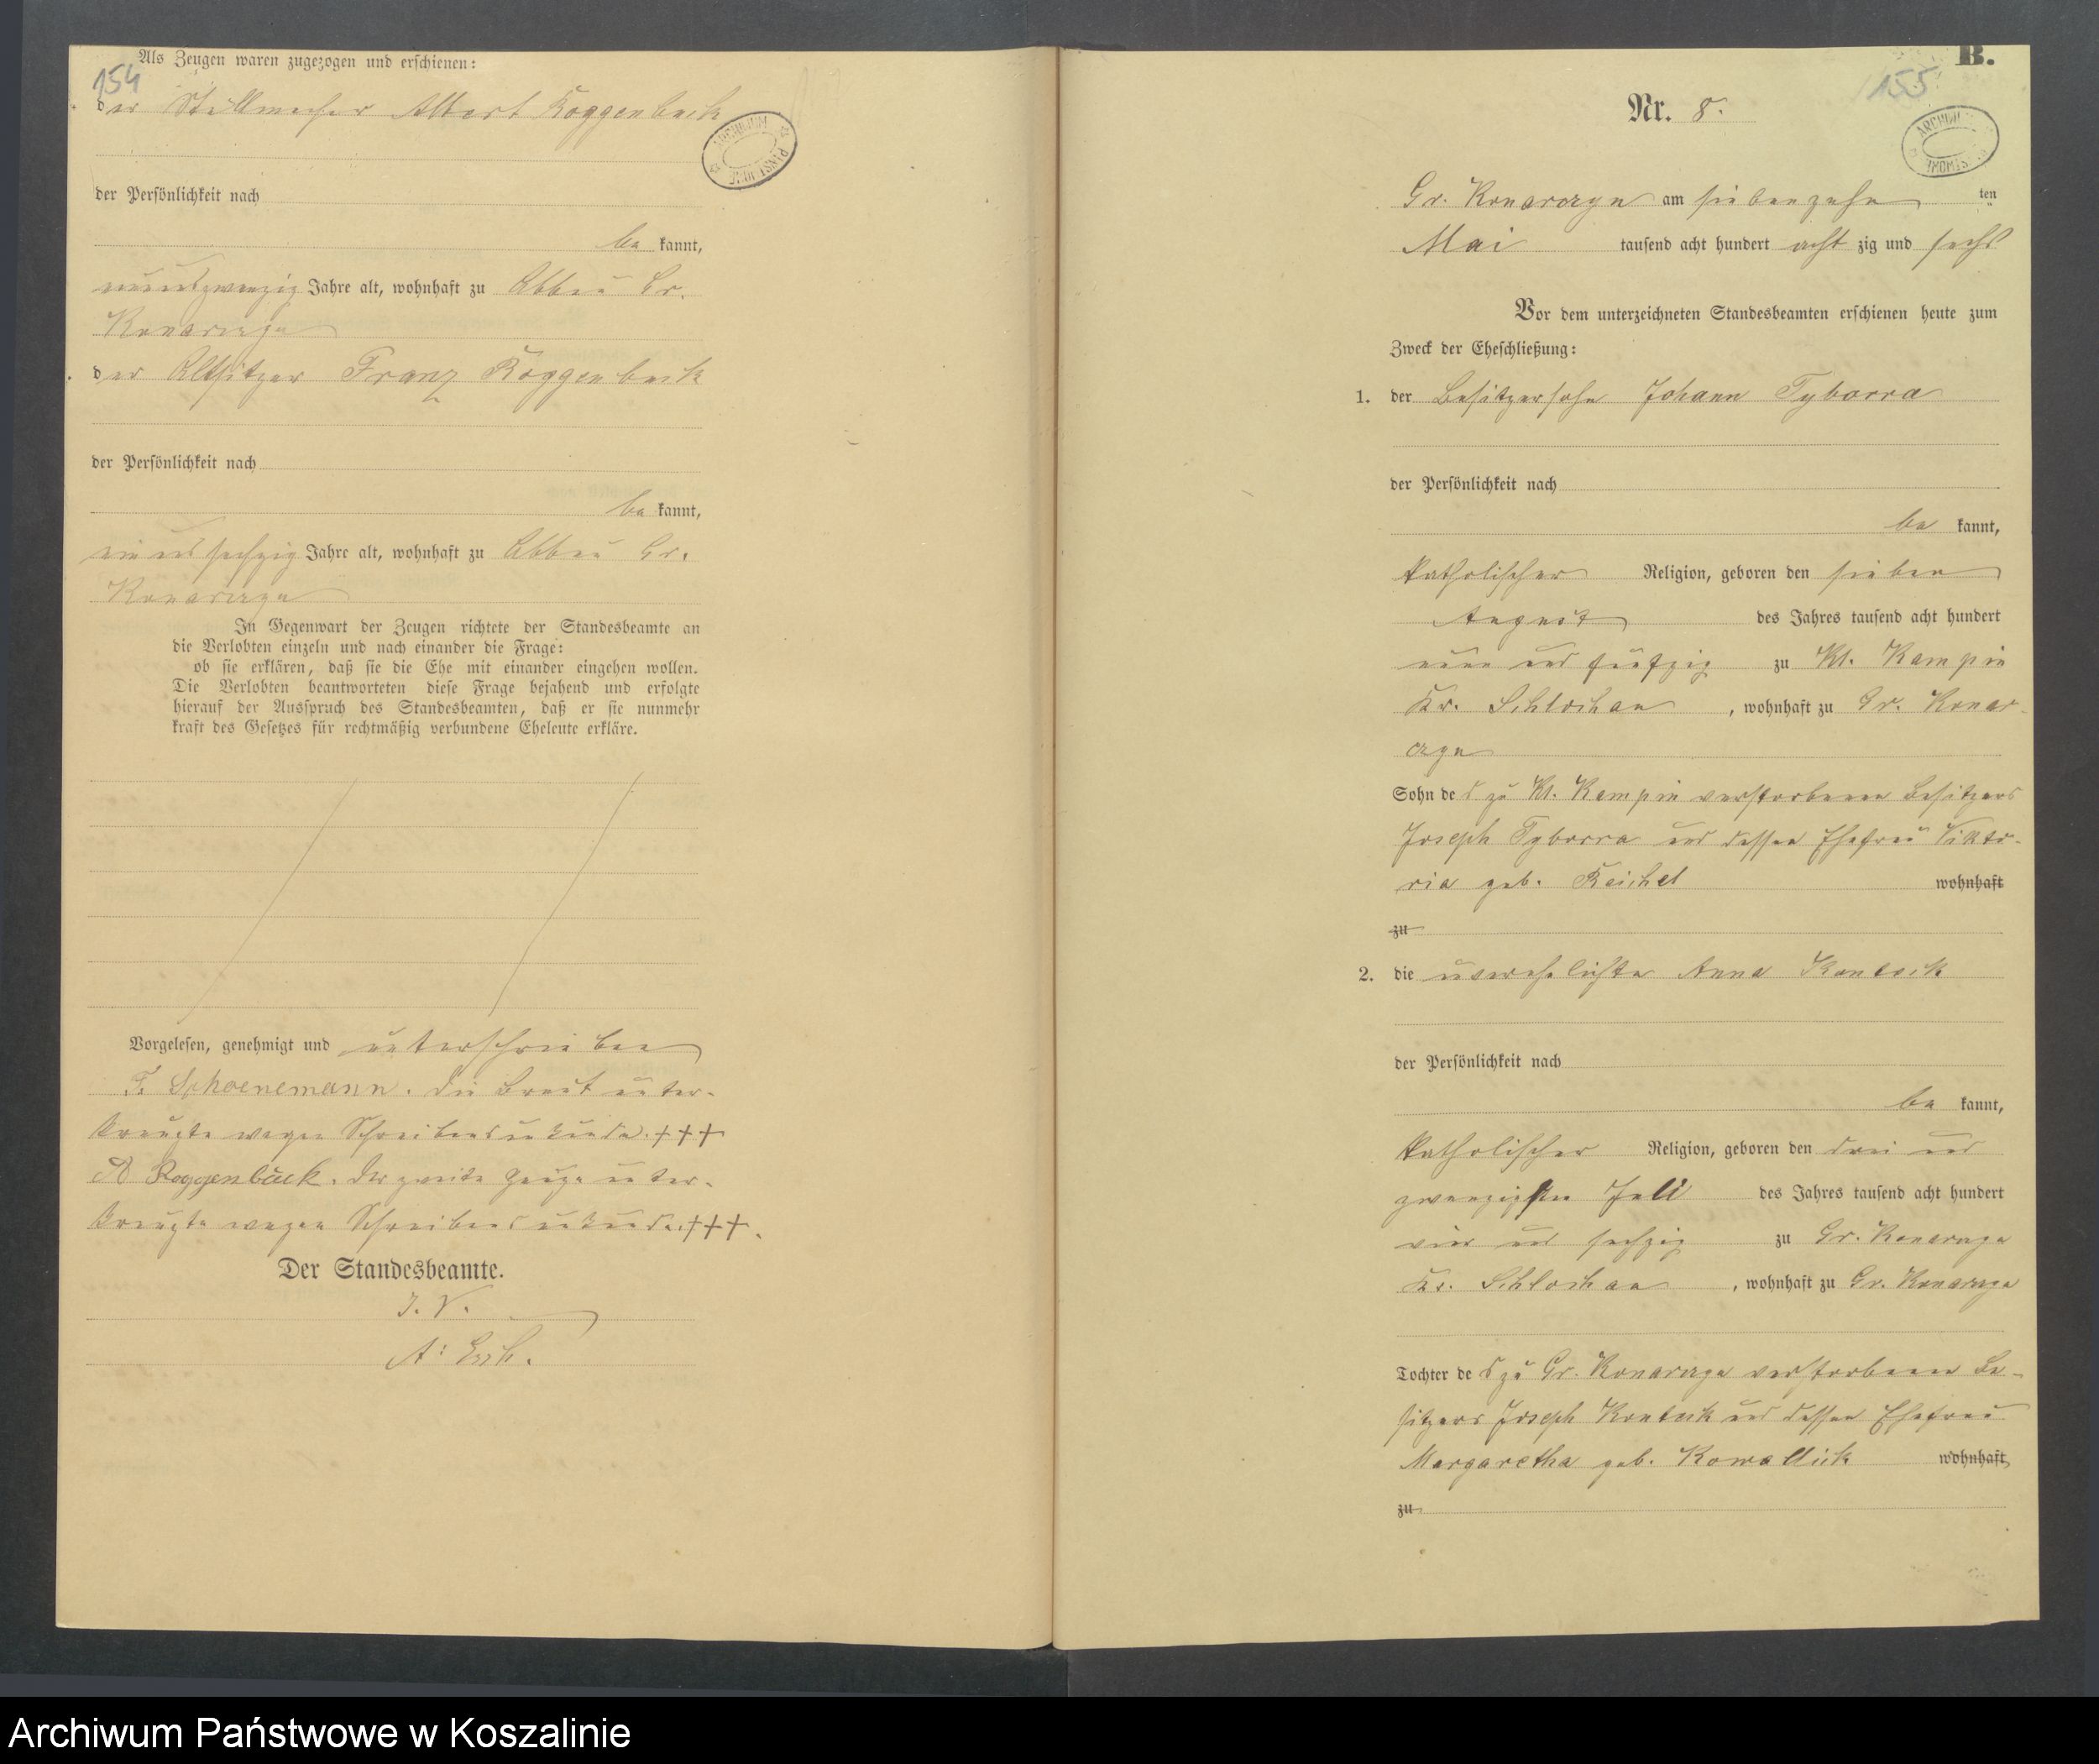 Als Zeugen waren zugezogen und erschienen:
154
der Stellmacher Albert Roggenbuck
ARCHIWUM PAŃSTWOWE
der Persönlichkeit nach
be kannt,
neunundzwanzig Jahre alt, wohnhaft zu Abbau Gr.
Konarczyn
der Altsitzer Franz Roggenbuck
der Persönlichkeit nach
be kannt,
ein und sechzig Jahre alt, wohnhaft zu Abbau Gr.
Konarczyn
In Gegenwart der Zeugen richtete der Standesbeamte an
die Verlobten einzeln und nach einander die Frage:
ob sie erklären, daß sie die Ehe mit einander eingehen wollen.
Die Verlobten beantworteten diese Frage bejahend und erfolgte
hierauf der Ausspruch des Standesbeamten, daß er sie nunmehr
kraft des Gesetzes für rechtmäßig verbundene Eheleute erkläre.
Vorgelesen, genehmigt und unterschrieben
F. Schoenemann. Die Braut unter-
kreuzte wegen Schreibensunkunde. +++
A Roggenbuck. Der zweite Zeuge unter-
kreuzte wegen Schreibensunkunde. +++.
Der Standesbeamte.
I. V.
A.
B.
155
Nr. 8.
Gr. Konarczyn am siebenzehn ten
Mai tausend acht hundert acht zig und sechs
Vor dem unterzeichneten Standesbeamten erschienen heute zum
Zweck der Eheschließung:
1. der Besitzersohn Johann Tyborra
der Persönlichkeit nach
be kannt,
katholischer Religion, geboren den sieben
August des Jahres tausend acht hundert
neun und fünfzig zu Kl. Kampin
Kr. Schlochau, wohnhaft zu Gr. Konar-
czyn
Sohn des zu Kl. Kampin verstorbenen Besitzers
Joseph Tyborra und dessen Ehefrau Vikto-
ria geb. Reichel wohnhaft
zu
2. die unverehelichte Anna Kontack
der Persönlichkeit nach
be kannt,
katholischer Religion, geboren den drei und
zwanzigsten Juli des Jahres tausend acht hundert
vier und sechzig zu Gr. Konarczyn
Kr. Schlochau, wohnhaft zu Gr. Konarczyn
Tochter des zu Gr. Konarczyn verstorbenen Be-
sitzers Joseph Kontack und dessen Ehefrau
Margaretha geb. Kowallik wohnhaft
zu
Archiwum Państwowe w Koszalinie